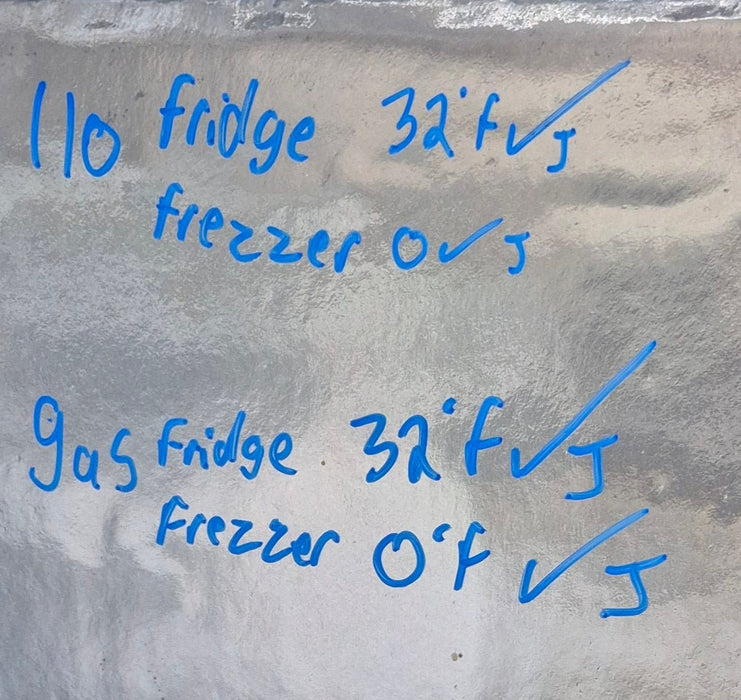 110 fridge 32°f ✓ J
frezzer 0 ✓ J
gas Fridge 32°f ✓ J
Frezzer 0°f ✓ J